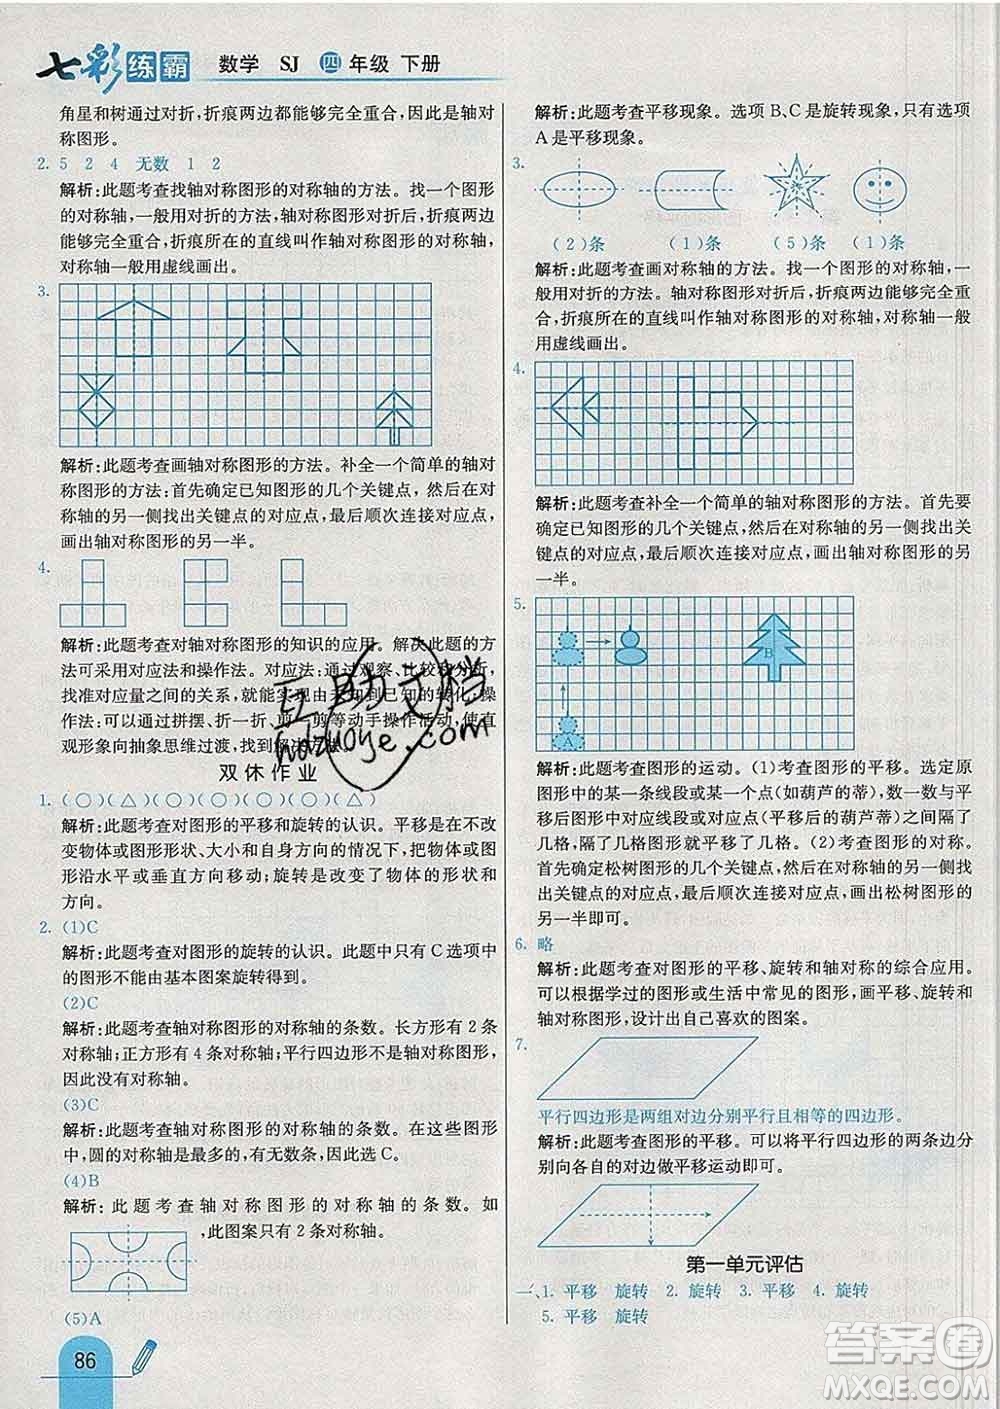 七彩练霸 数学 SJ 四年级 下册
角星和树通过对折,折痕两边都能够完全重合,因此是轴对
称图形。
2. 5 2 4 无数 1 2
解析:此题考查找轴对称图形的对称轴的方法。找一个图形
的对称轴,一般用对折的方法,轴对称图形对折后,折痕两边
能够完全重合,折痕所在的直线叫作轴对称图形的对称轴,
对称轴一般用虚线画出。
3.
解析:此题考查画轴对称图形的方法。补全一个简单的轴对
称图形:首先确定已知图形的几个关键点,然后在对
称轴的另一侧找出关键点的对应点,最后顺次连接对应点,
画出轴对称图形的另一半。
4.
解析:此题考查对轴对称图形的知识的应用。解决此题的方
法可采用对应法和操作法。对应法:通过观察、比较和分析,
找准对应量之间的关系,就能实现由未知到已知的转化;操作
法:可以通过拼摆、折一折、剪一剪等动手操作活动,使直
观形象向抽象思维过渡,找到解决方法。
双休作业
1. (○)(△)(○)(○)(○)(△)
解析:此题考查对图形的平移和旋转的认识。平移是在不改
变物体或图形形状、大小和自身方向的情况下,把物体或图
形沿水平或垂直方向移动;旋转是改变了物体的形状和
方向。
2. (1)C
解析:此题考查对图形的旋转的认识。此题中只有 C 选项中
的图形不能由基本图案旋转得到。
(2)C
解析:此题考查轴对称图形的对称轴的条数。长方形有 2 条
对称轴;正方形有 4 条对称轴;平行四边形不是轴对称图形,
因此没有对称轴。
(3)C
解析:此题考查轴对称图形的对称轴的条数。在这些图形
中,圆的对称轴是最多的,有无数条,因此选 C。
(4)B
解析:此题考查轴对称图形的对称轴的条数。如
,此图案只有 2 条对称轴。
(5)A
86
解析:此题考查平移现象。选项 B、C 是旋转现象,只有选项
A 是平移现象。
3.
(2)条 (1)条 (5)条 (1)条
解析:此题考查画对称轴的方法。找一个图形的对称轴,一
般用对折的方法。轴对称图形对折后,折痕两边能够完全重
合,折痕所在的直线叫作轴对称图形的对称轴,对称轴一般
用虚线画出。
4.
解析:此题考查补全一个简单的轴对称图形的方法。首先要
确定已知图形的几个关键点,然后在对称轴的另一侧找出关
键点的对应点,最后顺次连接对应点,画出轴对称图形的另
一半。
5.
B
A
解析:此题考查图形的运动。(1)考查图形的平移。选定原
图形中的某一条线段或某一个点(如葫芦的蒂),数一数平移
后图形中对应线段或对应点(平移后的葫芦蒂)之间隔了
几格,隔了几格图形就平移了几格。(2)考查图形的对称。
首先确定松树图形的几个关键点,然后在对称轴的另一侧找
出关键点的对应点,最后顺次连接对应点,画出松树图形的
另一半即可。
6. 略
解析:此题考查对图形的平移、旋转和轴对称的综合应用。
可以根据学过的图形或生活中常见的图形,画平移、旋转和
轴对称图形,设计出自己喜欢的图案。
7.
平行四边形是两组对边分别平行且相等的四边形。
解析:此题考查图形的平移。可以将平行四边形的两条边分
别向各自的对边做平移运动即可。
第一单元评估
一、1. 平移 旋转 2. 旋转 3. 平移 4. 旋转
5. 平移 旋转
互助文档
hdzuoye.com
答案圈
MXQE.COM